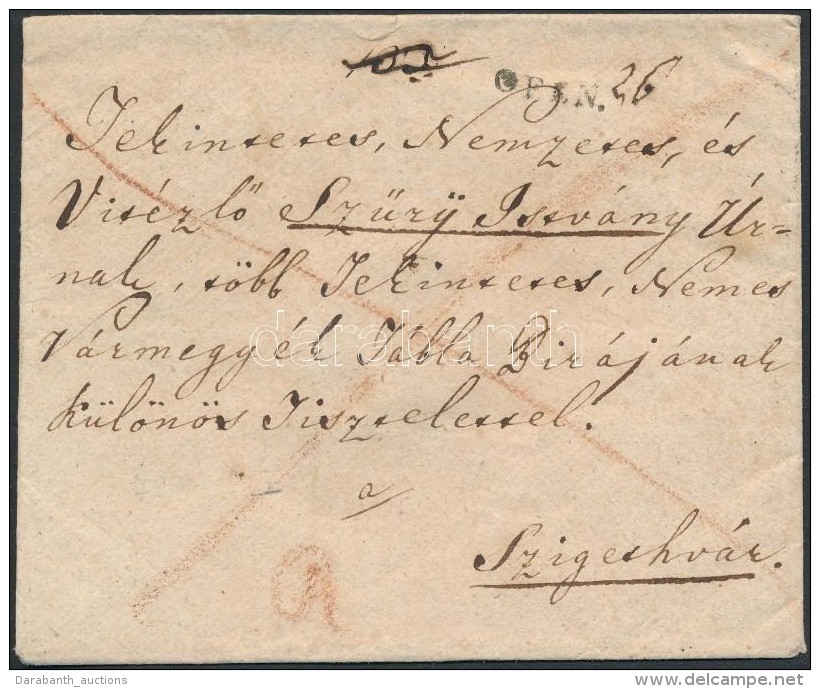 OFEN. 26
Tekintetes, Nemzetes, és
Vitézlő Szűrÿ Istvány Úr=
nak, több Tekintetes, Nemes
Vármegyék Tábla Birájának
különös Tisztelettel.
a
Szigethvár.
darabanth
Darabanth_auctions
delcampe.net